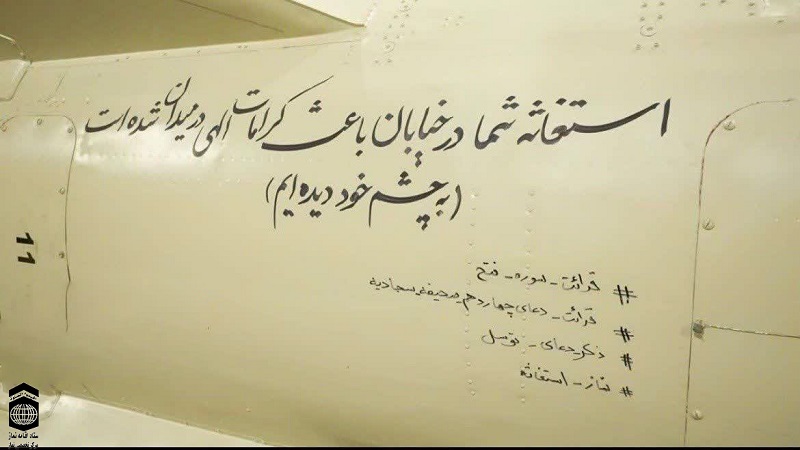 استغاثه شما در خیابان باعث کرامات الهی در میدان شده است
(به چشم خود دیده ایم)
# قرائت_سوره_فتح
# قرائت_دعای چهاردهم صحیفه سجادیه
# ذکر دعای_توسل
# نماز_استغاثه
11
ستاد اقامه نماز